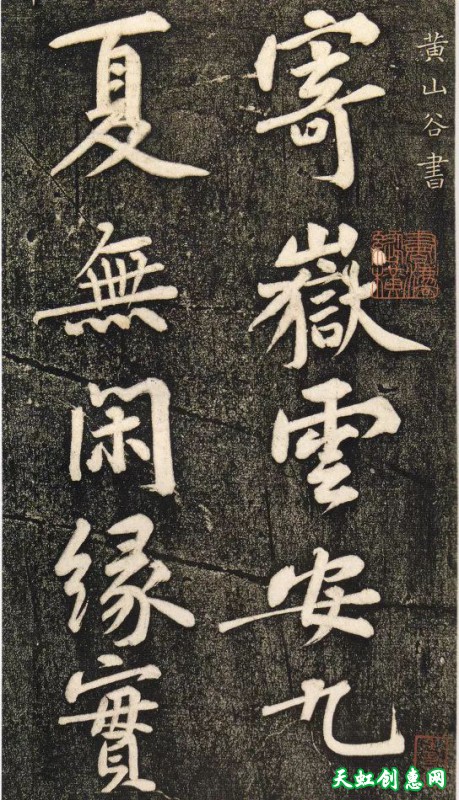 黄山谷書
寄嶽雲安九
夏無閑緣實
天虹创惠网